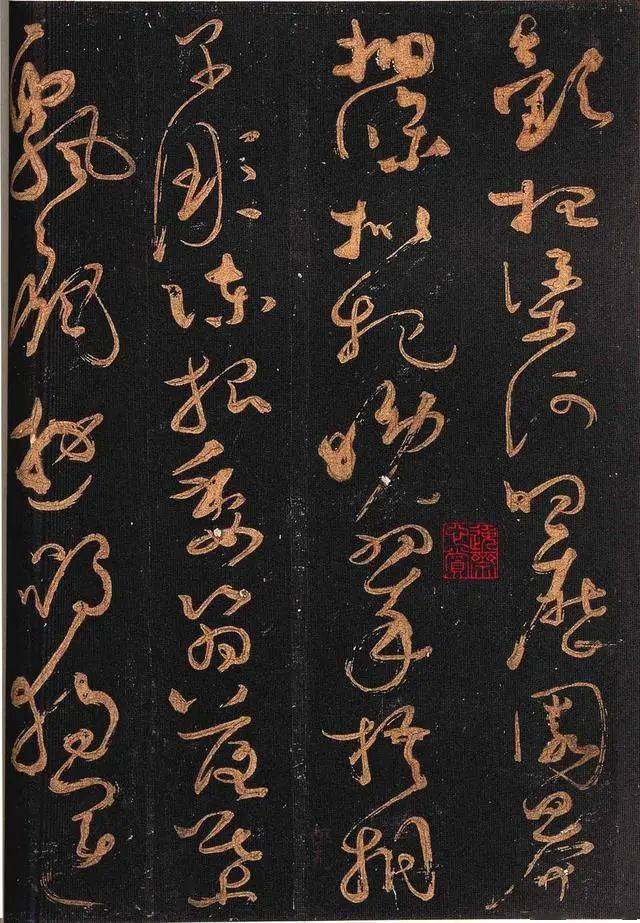 歡招渠荷的歷園莽
抽條枇杷晚翠梧桐
早彫陳根委翳落葉
飄颻遊鵾獨運